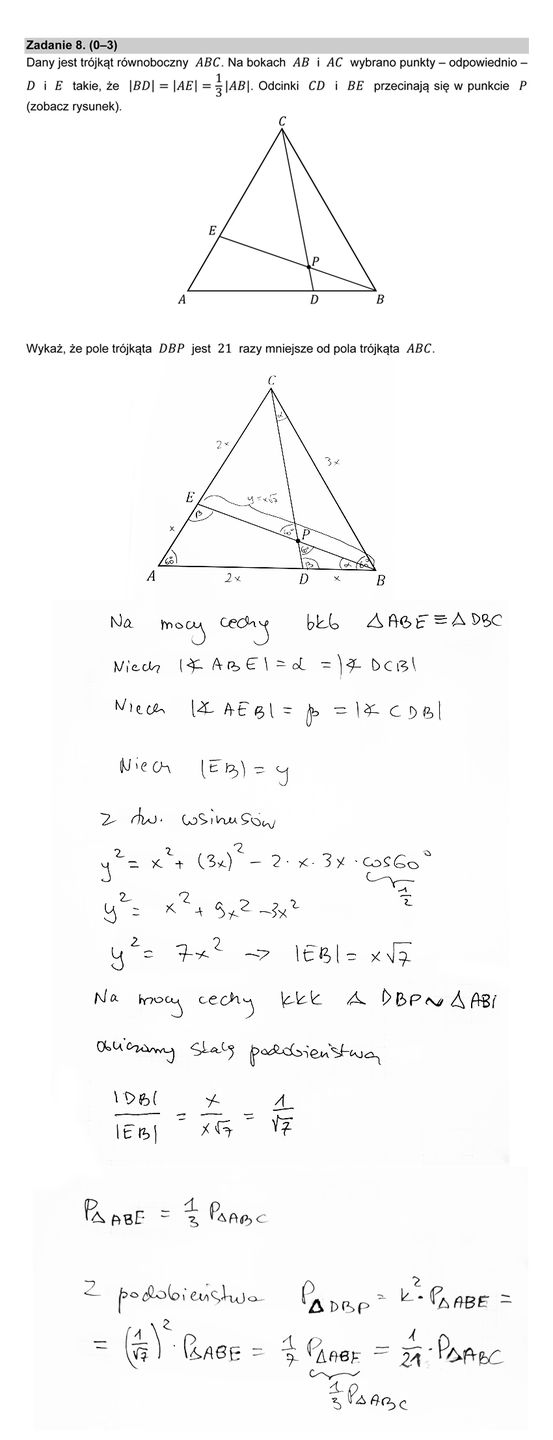 Zadanie 8. (0–3)
Dany jest trójkąt równoboczny ABC. Na bokach AB i AC wybrano punkty – odpowiednio –
D i E takie, że |BD| = |AE| = 1/3|AB|. Odcinki CD i BE przecinają się w punkcie P
(zobacz rysunek).
C
E
P
A D B
Wykaż, że pole trójkąta DBP jest 21 razy mniejsze od pola trójkąta ABC.
C
α
2x
3x
E
y=x√7
β
x
60° P
60°
60° β α 60°
A 2x D x B
Na mocy cechy bkb △ABE ≡ △DBC
Niech |∡ABE| = α = |∡DCB|
Niech |∡AEB| = β = |∡CDB|
Niech |EB| = y
Z tw. cosinusów
y² = x² + (3x)² − 2·x·3x·cos60°
1/2
y² = x² + 9x² − 3x²
y² = 7x² → |EB| = x√7
Na mocy cechy kkk △DBP ~ △ABE
obliczamy skalę podobieństwa
|DB|/|EB| = x/x√7 = 1/√7
P△ABE = 1/3 P△ABC
Z podobieństwa P△DBP = k²·P△ABE =
= (1/√7)²·P△ABE = 1/7 P△ABE = 1/21·P△ABC
1/3 P△ABC